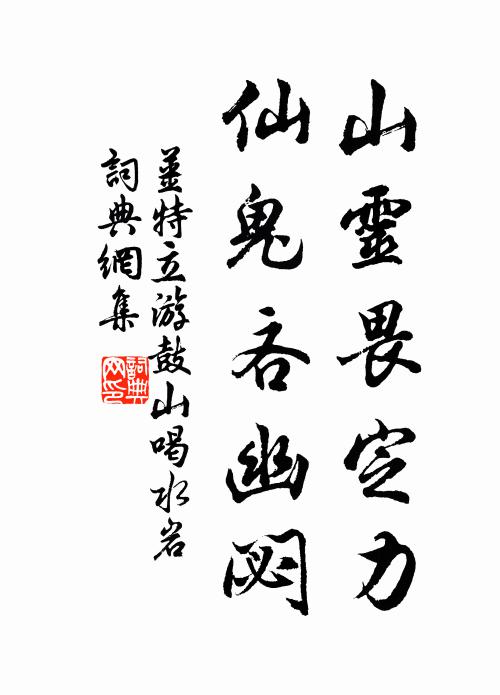 山靈畏定力
仙鬼吝幽閟
姜特立游鼓山喝水岩
詞典網集
詞典網印